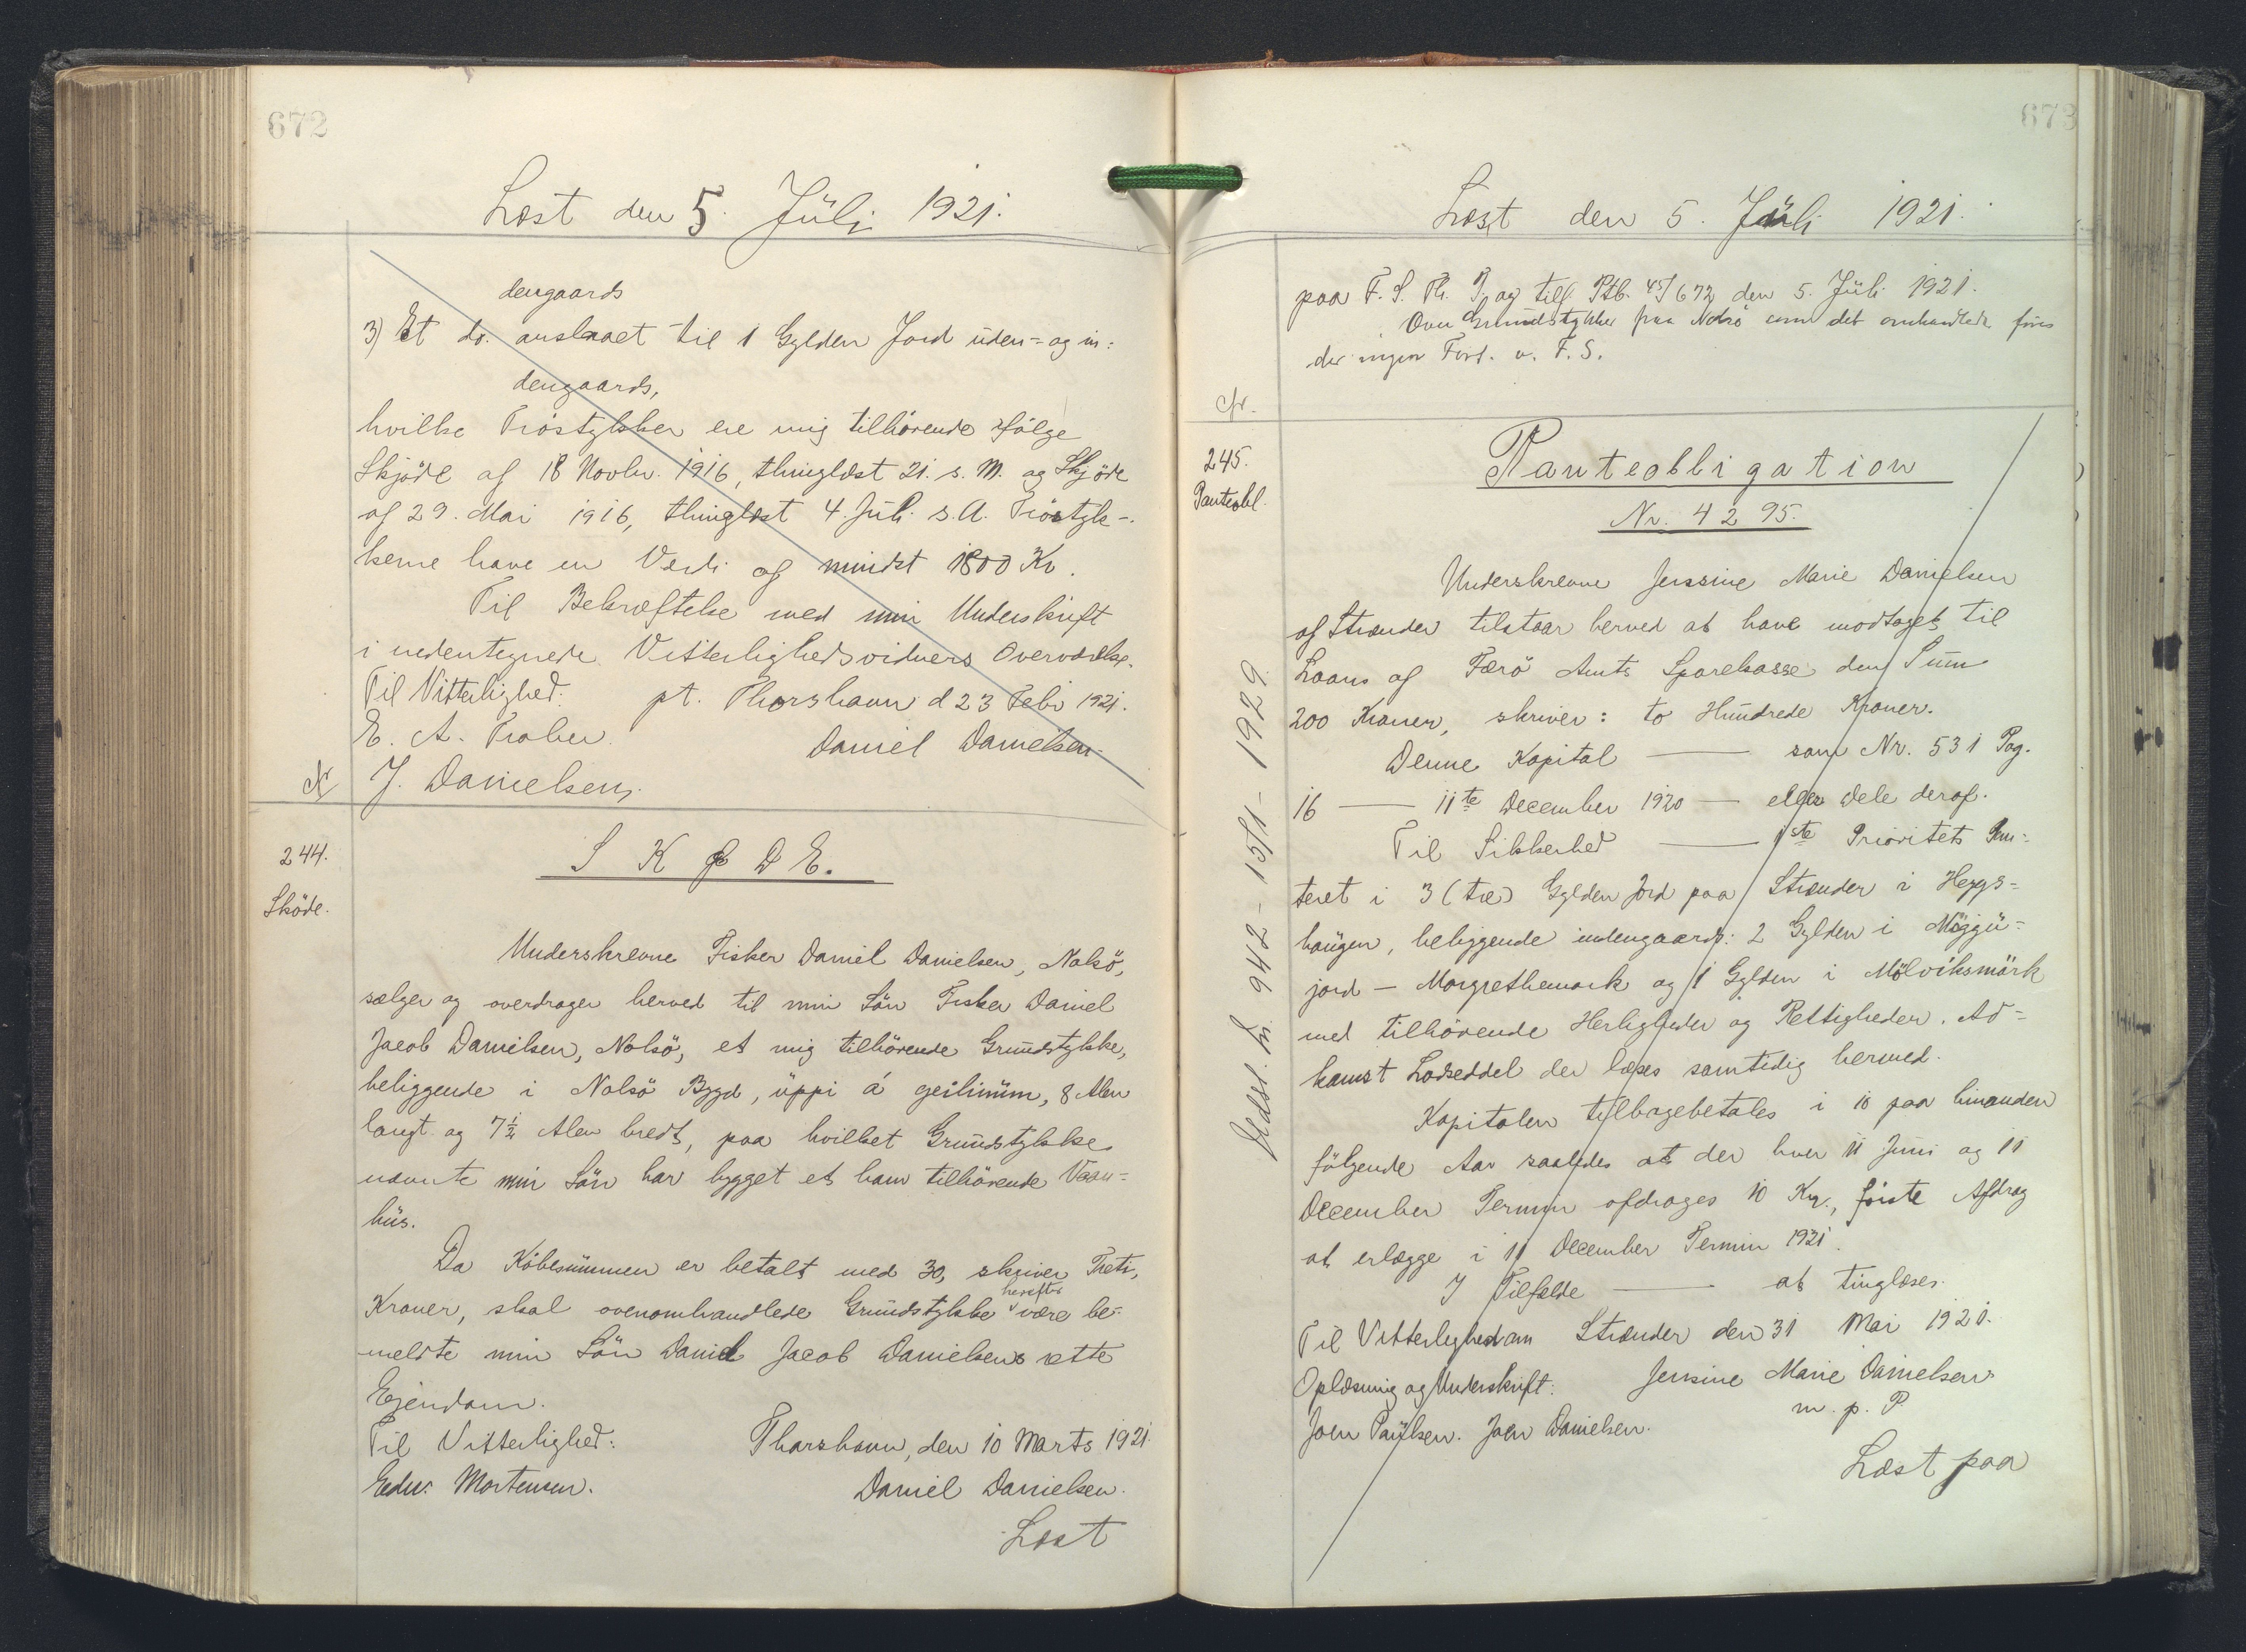 672
Læst den 5. Júli 1921.
dengaards
3) Et do. anslaaet til 1 Gylden Jord uden- og in:
dengaards,
hvilke Tröstykker ere mig tilhörende ifölge
Skjöde af 18 Novbr. 1916, thinglæst 21. s. M. og Skjöde
af 29. Mai 1916, thinglæst 4. Júli s. A. Tröstyk-
kerne have en Værdi af mindst 1800 Kr.
Til Bekræftelse med min Underskrift
i nedentegnede Vitterlighedsvidners Overværelse.
Til Vitterlighed: pt. Thorshavn d 23 Febr 1921.
E. A. Daniel Danielsen
J. Danielsen.
244.
Sköde.
S K Ø D E.
Underskrevne Fisker Daniel Danielsen, Nolsö,
sælger og overdrager herved til min Sön Fisker Daniel
Jacob Danielsen, Nolsö, et mig tilhörende Grúndstykke,
beliggende i Nolsö Bygd, úppi á geilinúm, 8 Alen
langt og 7½ Alen bredt, paa hvilket Grúndstykke
nævnte min Sön har bygget et ham tilhörende Vaan=
hús.
Da Köbesúmmen er betalt med 30, skriver Treti,
Kroner, skal ovenomhandlede Grúndstykke herefter være be-
meldte min Sön Daniel Jacob Danielsens rette
Ejendom.
Til Vitterlighed: Thorshavn, den 10 Marts 1921.
Edw. Mortensen. Daniel Danielsen.
Læst
673
Læst den 5. Júli 1921.
paa F. S. Th. P. og tilf. Ptb. 45/672 den 5. Júli 1921.
Over Grúndstykker paa Nolsö som det omhandlede föres
der ingen Fort. v. F. S.
cfr.
245.
Panteobl.
Panteobligation
Nr. 4295.
Underskrevne Jenssine Marie Danielsen
af Strænder tilstaar herved at have modtaget til
Laans af Færö Amts Sparekasse den Súm
200 Kroner, skriver: to Húndrede Kroner.
Denne Kapital — som Nr. 531 Pag.
16 — 11te December 1920 — eller Dele deraf.
Til Sikkerhed — 1ste Prioritets Pan:
teret i 3 (tre) Gylden Jord paa Strænder i Heygs=
haúgen, beliggende indengaards: 2 Gylden i Möggú=
jord — Morgrethemark og 1 Gylden i Mölviksmörk
med tilhörende Herligheder og Rettigheder. Ad=
komst Lodseddel der læses samtidig hermed.
Kapitalen tilbagebetales i 10 paa hinanden
fölgende Aar saaledes at der hver 11 Júni og 11
December Termin afdrages 10 Kr., förste Afdrag
at erlægge i 11 December Termin 1921.
I Tilfælde — at tinglæses.
Til Vitterlighed om Strænder den 31 Mai 1921.
Oplæsning og Underskrift: Jensine Marie Danielsen
Joen Paúlsen. Joen Danielsen. m. p. P
Læst paa
942 - 15/1 - 1929